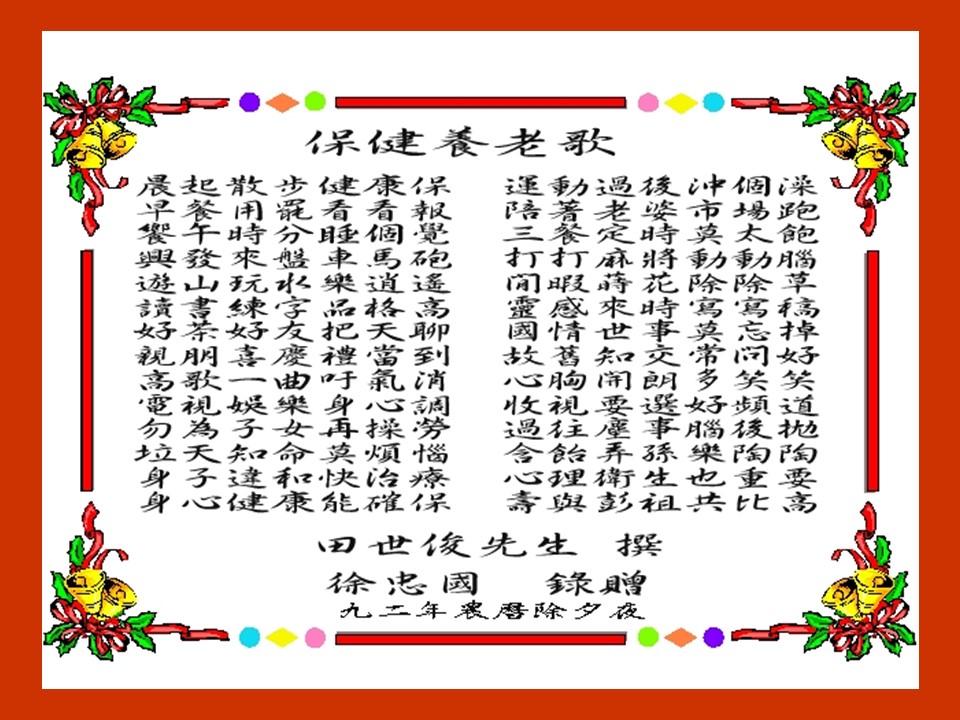 保健養老歌
晨起散步健康保 運動過後沖個澡
早餐用罷看看報 陪著老婆市場跑
饗午時分睡個覺 三餐定時莫太飽
興發來盤車馬砲 打打麻將動動腦
遊山玩水樂逍遙 閒暇蒔花除除草
讀書練字品格高 靈感來時寫寫稿
好茶好友把天聊 國情世事莫忘掉
親朋喜慶禮當到 故舊知交常問好
高歌一曲吁氣消 心胸開朗多笑笑
電視娛樂身心調 收視要選好頻道
勿為子女再操勞 過往塵事腦後拋
垃天知命莫煩惱 含飴弄孫樂陶陶
身子違和快治療 心理衛生也重要
身心健康能確保 壽與彭祖共比高
田世俊先生 撰
徐忠國 錄贈
九二年農曆除夕夜